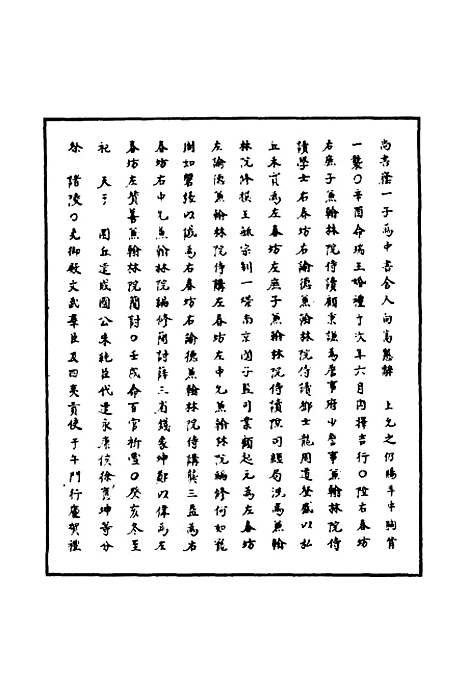 尚書蔭一子為中書舍人向高懇辭　上允之仍賜斗牛胸背
一襲〇辛酉命瑞王婚禮于次年六月內擇吉行〇陞右春坊
右庶子兼翰林院侍讀顧秉謙為詹事府少詹事兼翰林院侍
讀學士右春坊右諭德兼翰林院侍讀鄧士龍周道登盛以弘
丘禾實為左春坊左庶子兼翰林院侍讀陞司經局洗馬兼翰
林院修撰王毓宗制一燝南京國子監司業賴起元為左春坊
左諭德兼翰林院侍講左春坊左中允兼翰林院編修何如寵
周如磐張以誠為右春坊右諭德兼翰林院侍講龔三益為右
春坊右中允兼翰林院編修簡討薛三省魏象坤鄭以偉為左
春坊左贊善兼翰林院簡討〇壬戌命百官祈雪〇癸亥冬至
祀　天于　圜丘遣成國公朱純臣代遣永康侯徐　坤等分
祭　諸陵〇免御殿文武羣臣及四夷貢使于午門行慶賀禮